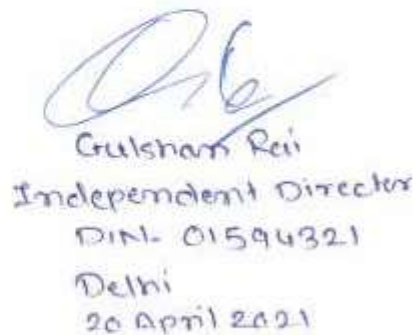 Gulshan Rai
Independent Director
DIN- 01594321
Delhi
20 April 2021